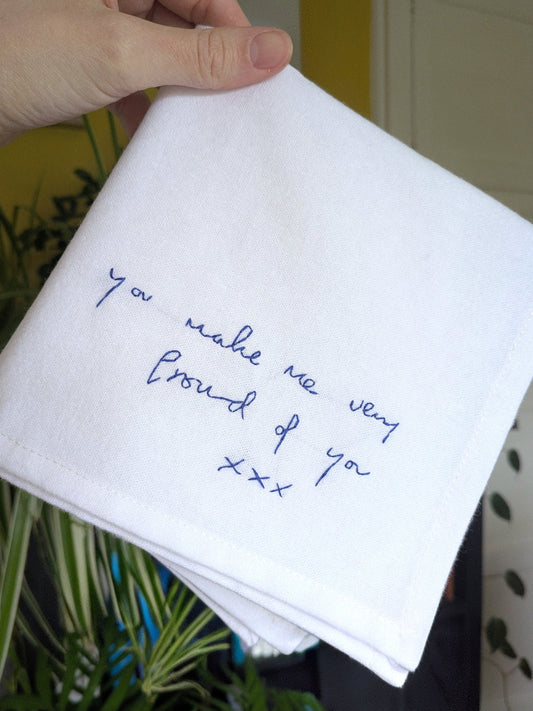 you make me very
Proud of you
xxx